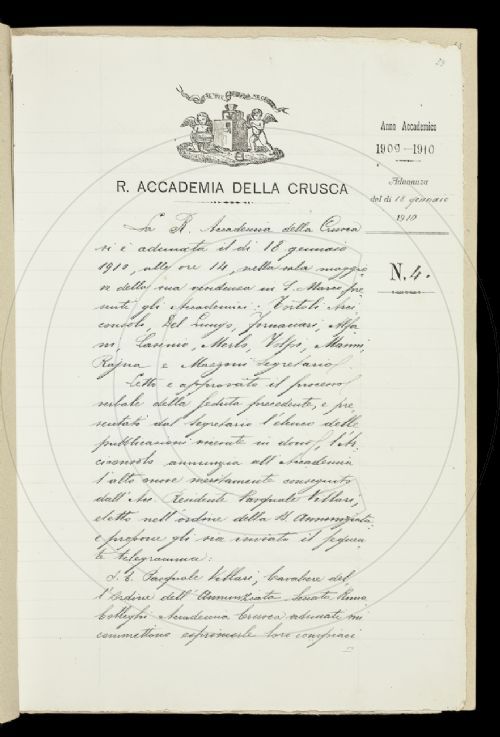 Anno Accademico
1909-1910
Adunanza
del dì 18 gennaio
1910
N. 4.
R. ACCADEMIA DELLA CRUSCA
La R. Accademia della Crusca
si è adunata il dì 18 gennaio
1910, alle ore 14, nella sala maggio
re della sua residenza in S. Marco pre
senti gli Accademici: Tortoli Arci
consolo, Del Lungo, Fornaciari, Alfa
ni, Casinio, Merlo, Volpi, Manni,
Rajna e Mazzoni segretario.
Letto e approvato il processo
verbale della seduta precedente, e pre
sentati dal segretario l'elenco delle
pubblicazioni venute in dono, l'Ar
ciconsolo annunzia all'Accademia
l'alto onore meritamente conseguito
dall'Acc. residente Pasquale Villari,
eletto nell'ordine della SS. Annunziata
e propone gli sia inviato il seguen
te telegramma:
S. E. Pasquale Villari, Cavaliere del
l'Ordine dell'Annunziata Senato Roma
Colleghi Accademia Crusca adunati mi
commettono esprimerle loro compiaci